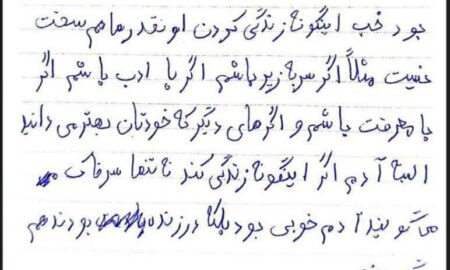 بود خب اینگونه زندگی کردن اونقدرها هم سخت
نیست مثلاً اگر سر به زیر باشم اگر با ادب باشم اگر
با معرفت باشم و اگرهای دیگر که خودتان بهتر می دانید
البته آدم اگر اینگونه زندگی کند نه تنها سر خاک
می گویند آدم خوبی بود بلکه در زنده بودنم هم